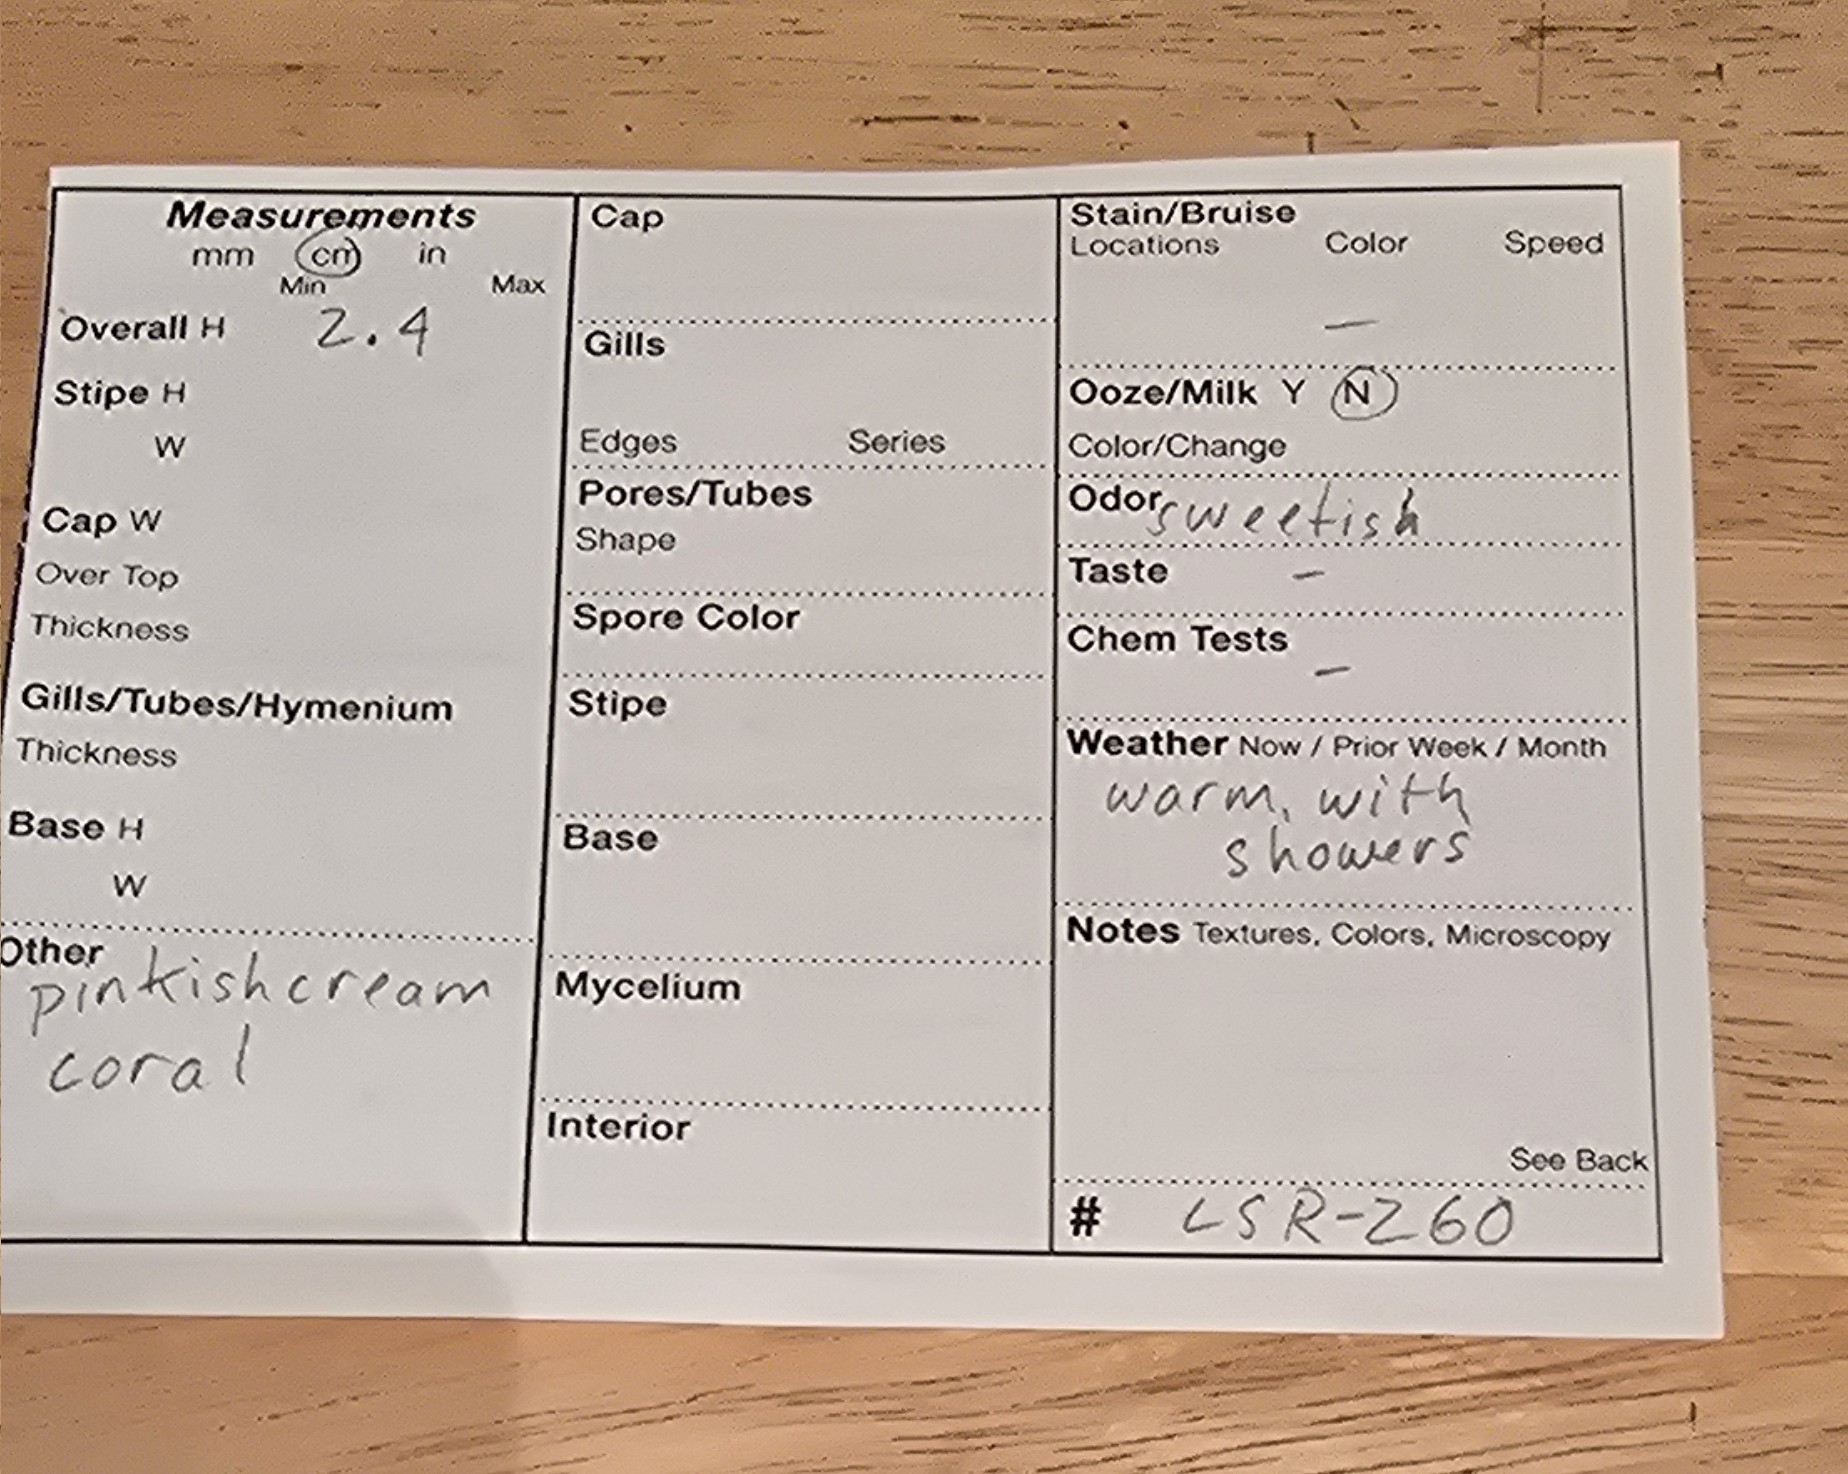 Measurements
mm cm in
Min Max
Overall H 2.4
Stipe H
W
Cap W
Over Top
Thickness
Gills/Tubes/Hymenium
Thickness
Base H
W
Other
pinkish cream
coral
Cap
Gills
Edges Series
Pores/Tubes
Shape
Spore Color
Stipe
Base
Mycelium
Interior
Stain/Bruise
Locations Color Speed
—
Ooze/Milk Y N
Color/Change
Odor sweetish
Taste —
Chem Tests
—
Weather Now / Prior Week / Month
warm, with
showers
Notes Textures, Colors, Microscopy
See Back
# LSR-260